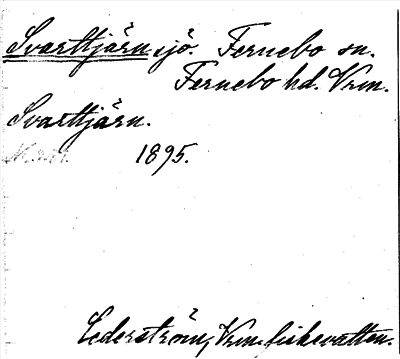 Svarttjärn sjö. Fernebo sn.
Fernebo hd. Vrm.
Svarttjärn.
1895.
Cederström, Vrm. fiskevatten.